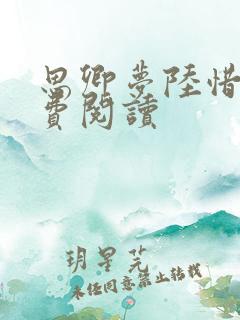 思卿梦陸惜
費閱讀
玥星芜
未经同意禁止转载